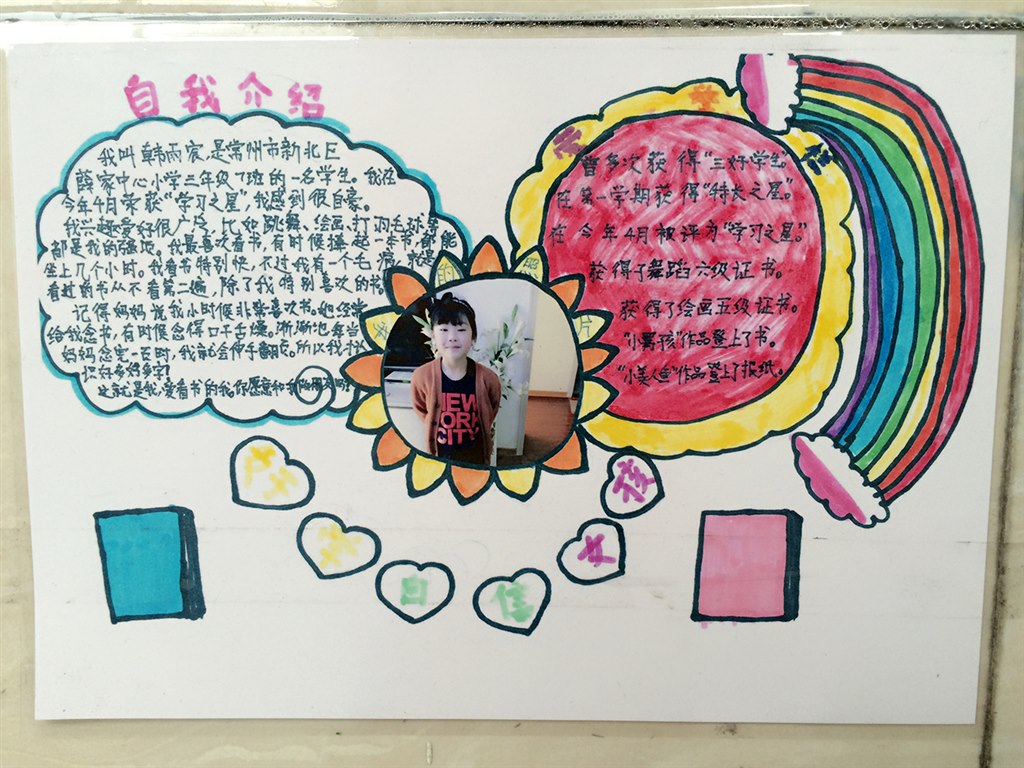 自我介绍
我叫韩雨宸,是常州市新北区
薛家中心小学三年级7班的一名学生。我在
今年4月荣获“学习之星”,我感到很自豪。
我兴趣爱好很广泛,比如跳舞、绘画、打羽毛球等
都是我的强项。我最喜欢看书,有时候捧起一本书,都能
坐上几个小时。我看书特别快,不过我有一个毛病,就是
看过的书从不看第二遍,除了我特别喜欢的书
记得妈妈说我小时候非常喜欢书。她经常
给我念书,有时候念得口干舌燥。渐渐地每当
妈妈念完一页时,我就会伸手翻页。所以我才
识好多好多字!
这就是我,爱看书的我。你愿意和我做朋友吗
荣
誉
曾多次获得“三好学生”。
在第一学期获得“特长之星”。
在今年4月被评为“学习之星”。
获得了舞蹈六级证书。
获得了绘画五级证书。
“小男孩”作品登上了书。
“小美人鱼”作品登上了报纸。
我
的
照
片
NEW
YORK
CITY
自
信
女
孩